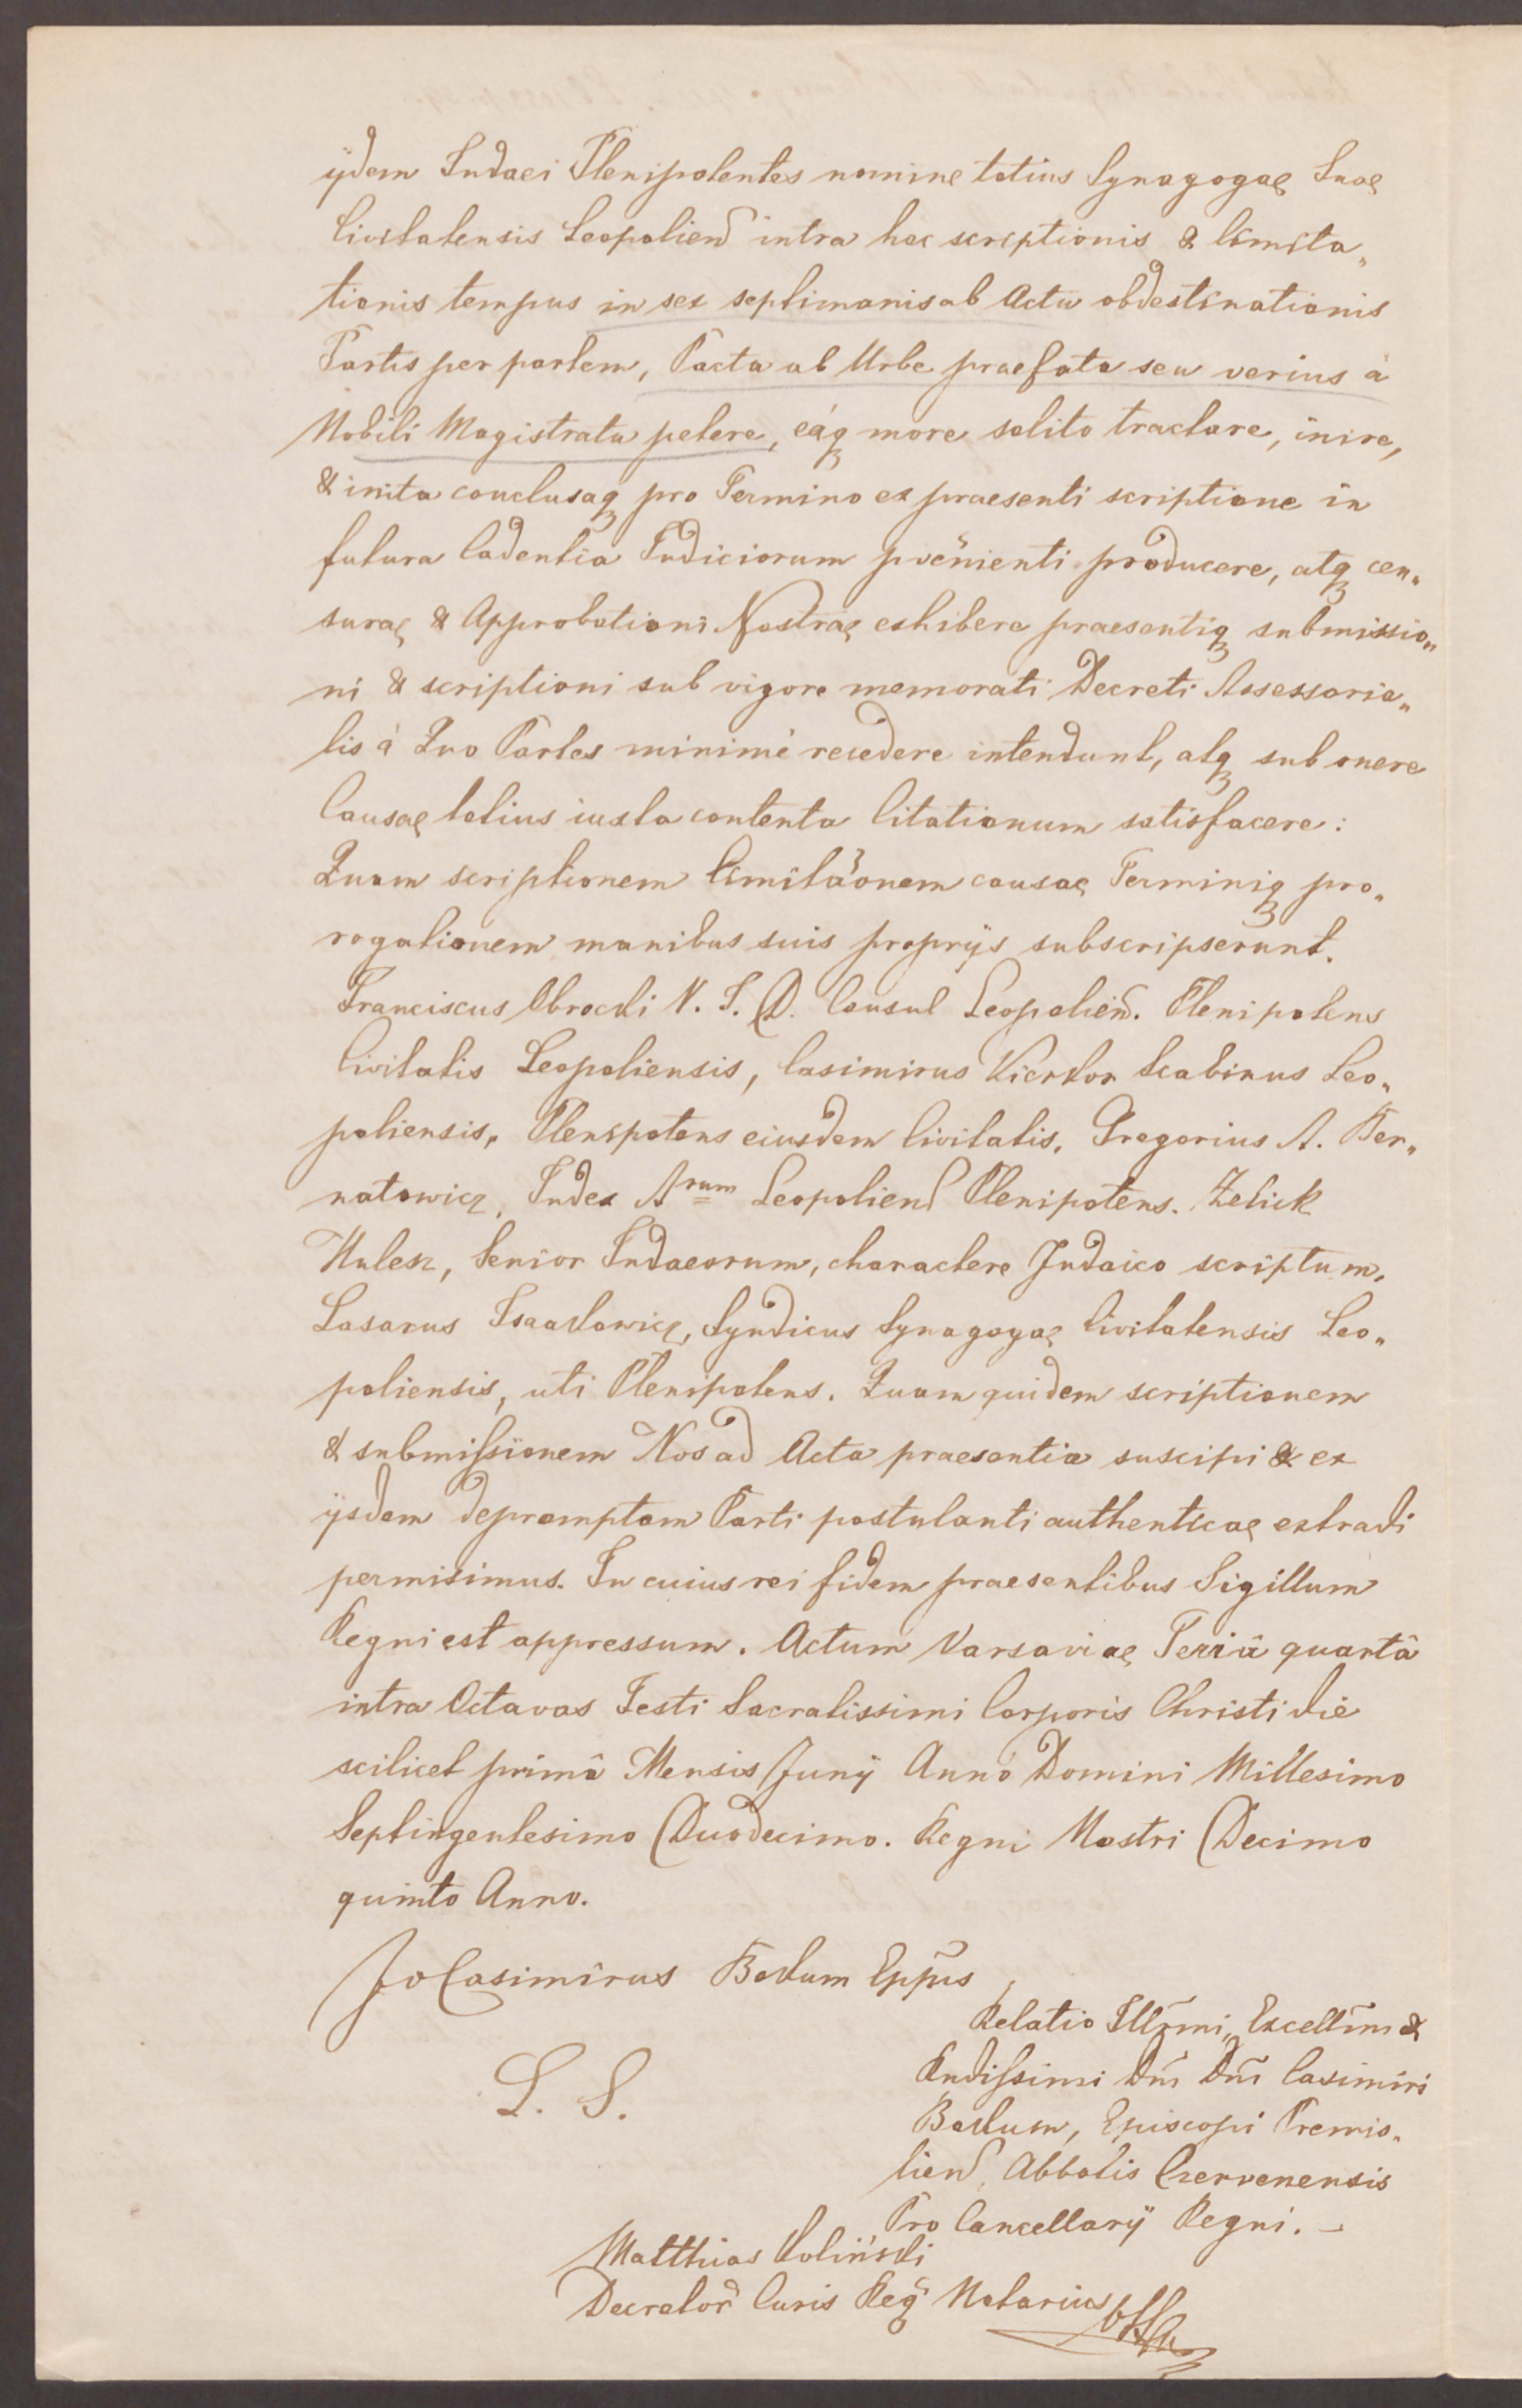 ijdem Judaei Plenipotentes nomine totius Synagogae Suae
Civitatensis Leopolien intra hoc scriptionis & limita„
tionis tempus in sex septimanis ab Actu obdestinationis
Partis per partem, Pacta ab Urbe praefata seu verius à
Nobili Magistratu petere, eáq more solito tractare, inire,
& inita conclusaq pro Termino ex praesenti scriptione in
futura Cadentia Judiciorum pvenienti producere, atq cen„
surae & Approbationi Nostrae exhibere praesentiq submissio„
ni & scriptioni sub vigore memorati Decreti Assessoria„
lis à Quo Partes minimè recedere intendunt, atq sub onere
Causae totius iuxta contenta Citationum satisfacere:
Quam scriptionem limitãonem causae Terminiq pro„
rogationem manibus suis proprijs subscripserunt.
Franciscus Obrocki V. J. D. Consul Leopolien. Plenipotens
Civitatis Leopoliensis, Casimirus Scabinus Leo„
poliensis, Plenipotens eiusdem Civitatis, Gregorius A. Ber„
natowicz, Judex A rum Leopolien Plenipotens. Zelick
Senior Judaeorum, charactere Judaico scriptum,
Lasarus Isaakowicz, Syndicus Synagogae Civitatensis Leo„
poliensis, uti Plenipotens. Quam quidem scriptionem
& submissionem Nos ad Acta praesentia suscipi & ex
ijsdem depromptam Parti postulanti authenticae extradi
permisimus. In cuius rei fidem praesentibus Sigillum
Regni est appressum. Actum Varsaviae Feriâ quartâ
intra Octavas Festi Sacratissimi Corporis Christi die
scilicet primâ Mensis Junij Anno Domini Millesimo
Septingentesimo Duodecimo. Regni Nostri Decimo
quinto Anno.
Jo Casimirus Bokum Eppus
Relatio Illrmi, Excellmi &
Rndissimi Dni Dni Casimiri
L. S.
Bokum, Episcopi Premis„
lien, Abbatis Czervenensis
Pro Cancellarij Regni. –
Matthias Koliński
Decretor Curis Reg Notarius